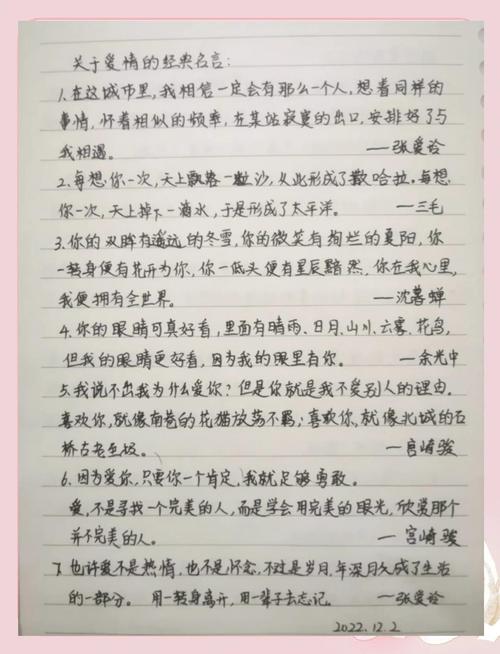 关于爱情的经典名言：
1.在这城市里，我相信一定会有那么一个人，想着同样的
事情，怀着相似的频率，在某站寂寞的出口，安排好了与
我相遇。 —张爱玲
2.每想你一次，天上飘落一粒沙，从此形成了撒哈拉。每想
你一次，天上掉下一滴水，于是形成了太平洋。 —三毛
3.你的双眸有遥远的冬雪，你的微笑有绚烂的夏阳，你
一转身便有花开为你，你一低头便有星辰黯然，你在我心里，
我便拥有全世界。 —沈暮蝉
4.你的眼睛可真好看，里面有晴雨、日月、山川、云雾、花鸟，
但我的眼睛更好看，因为我的眼里有你。 —余光中
5.我说不出我为什么爱你？但是你就是我不爱别人的理由。
喜欢你，就像南巷的花猫放荡不羁；喜欢你，就像北城的石
桥古老至极。 —宫崎骏
6.因为爱你，只要你一个肯定，我就足够勇敢。
爱，不是寻找一个完美的人，而是学会用完美的眼光，欣赏那个
并不完美的人。 —宫崎骏
7.也许爱不是热情，也不是怀念，不过是岁月，年深月久成了生活
的一部分。 用一转身离开，用一辈子去忘记。 —张爱玲
2022.12.2